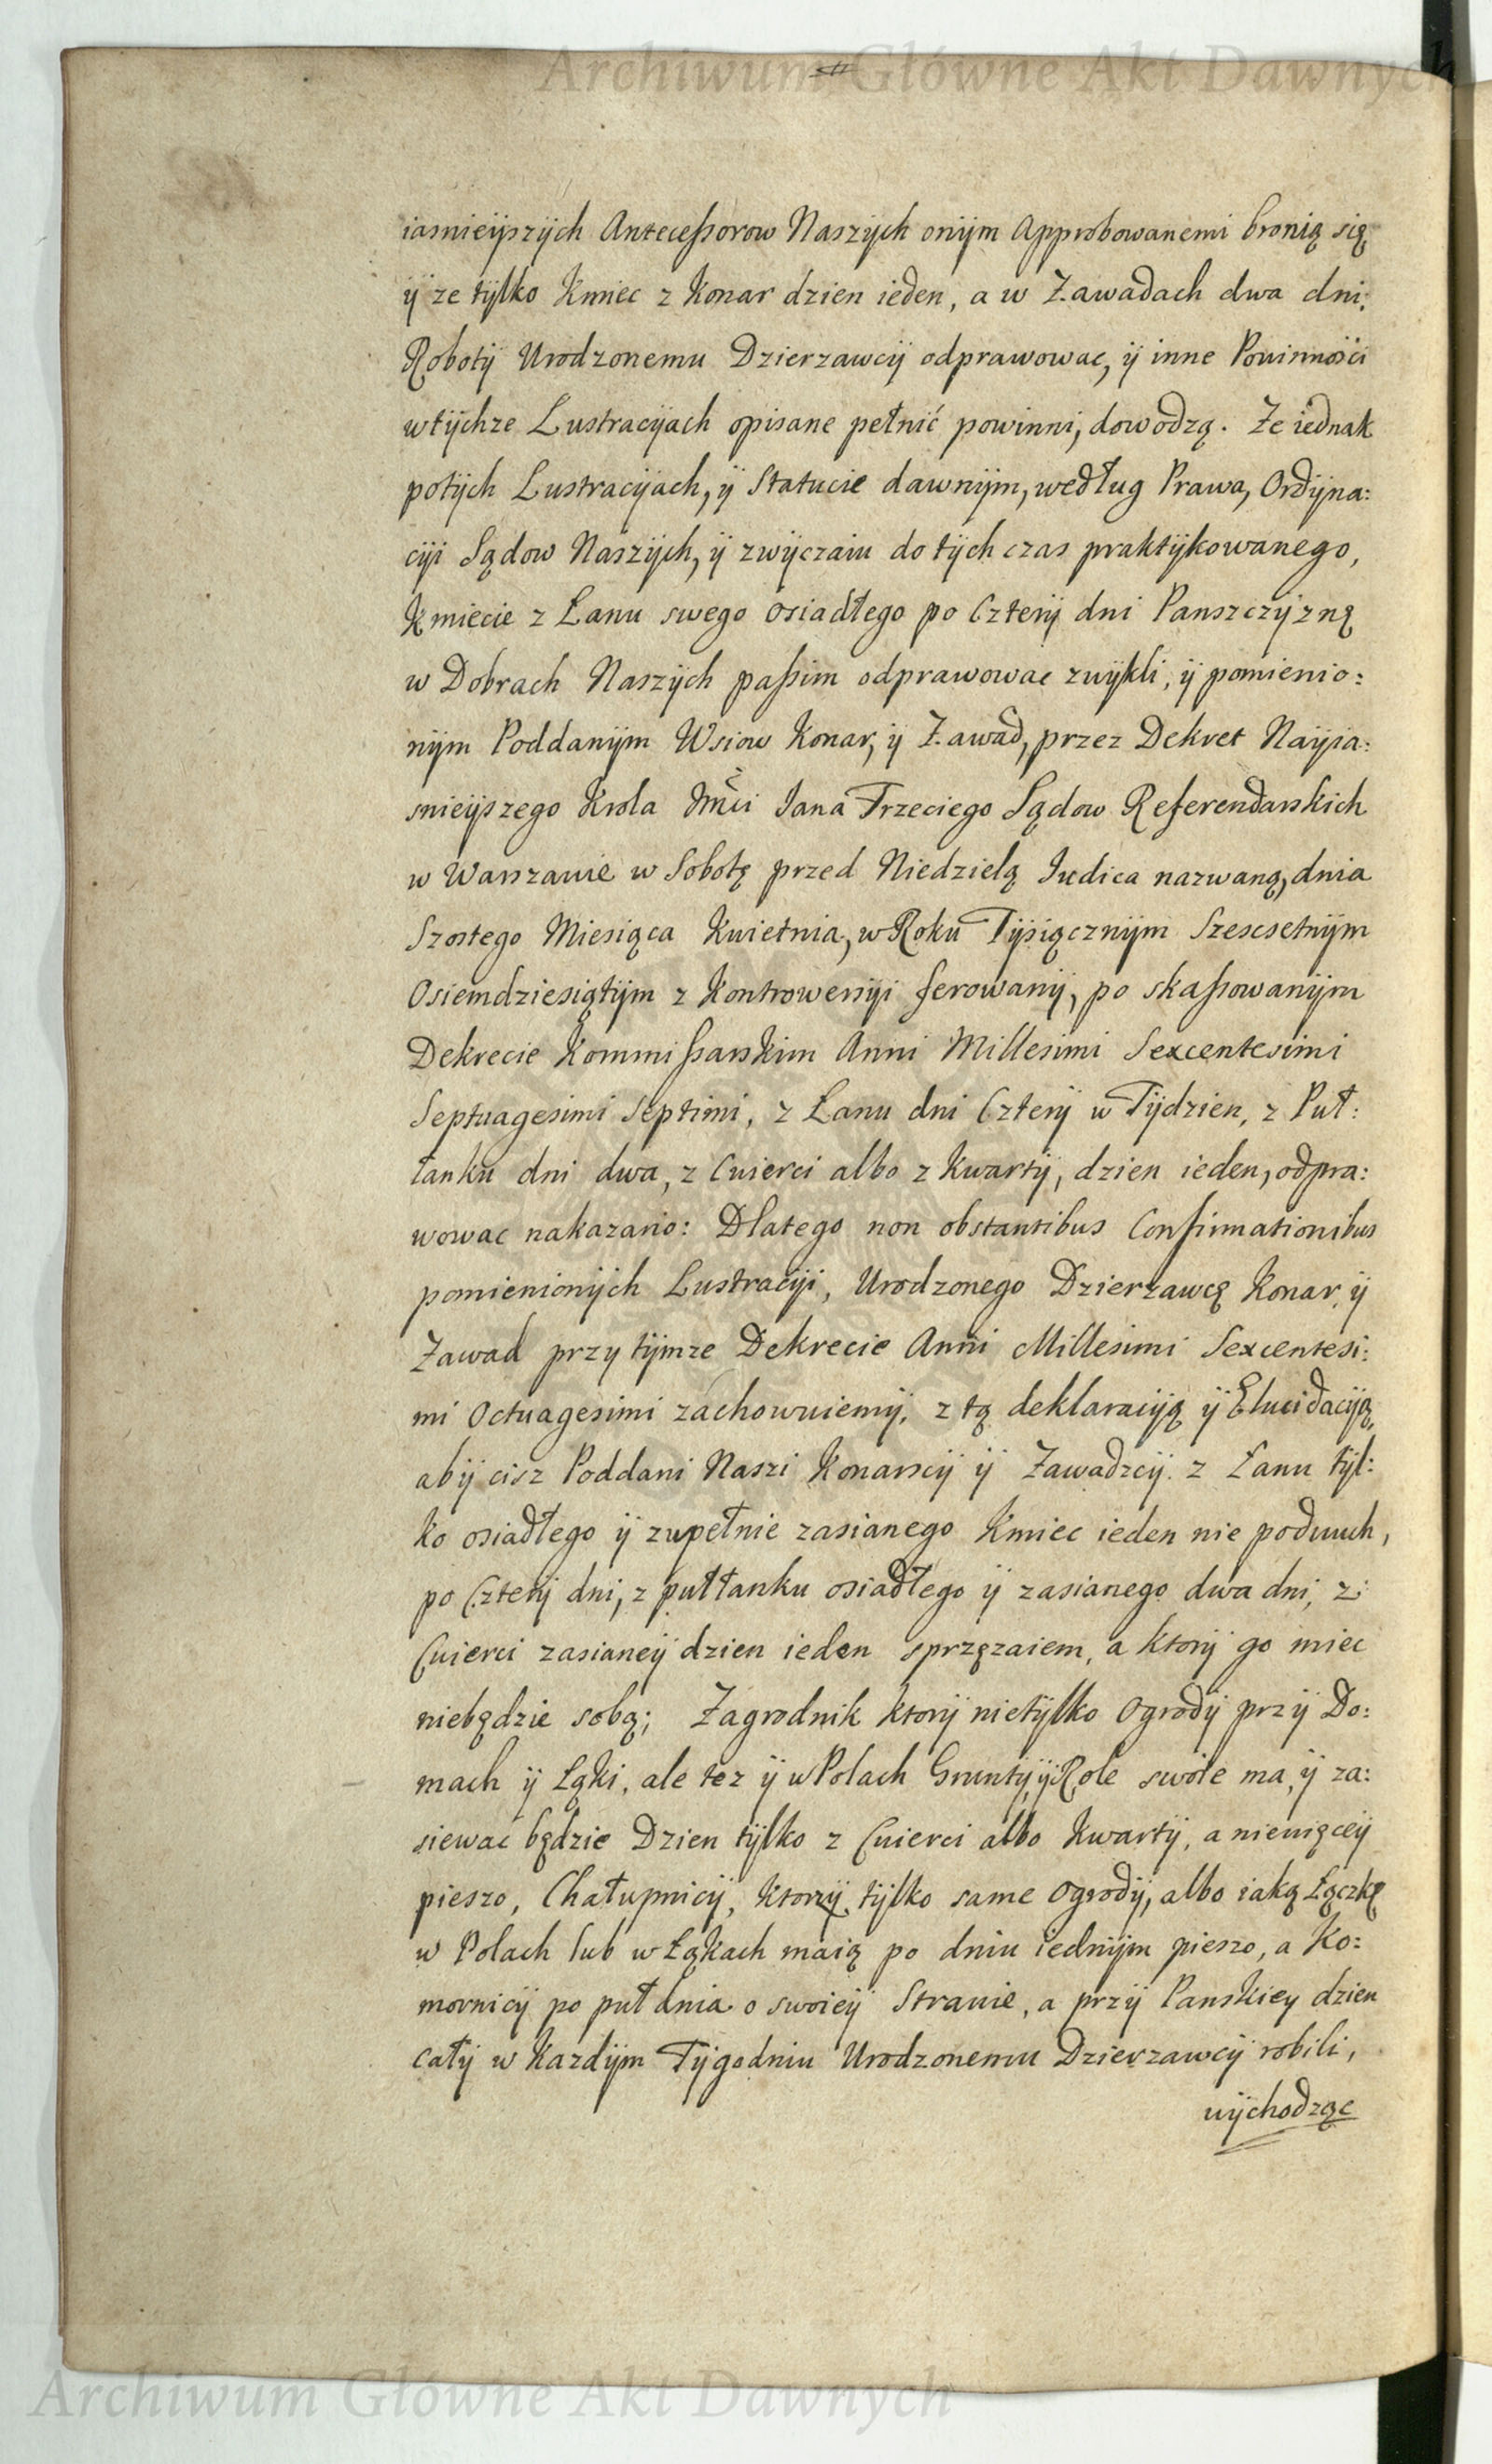 Archiwum Główne Akt Dawnych
iasnieÿszÿch Antecessorow Naszÿch onÿm Approbowanemi bronią się
ÿ ze tÿlko Kmiec z Konar dzien ieden, a w Zawadach dwa dni
Robotÿ Urodzonemu Dzierzawcÿ odprawowac, ÿ inne Powinnosci
wtÿchze Lustracÿach opisane pełnić powinni, dowodzą. Ze iednak
potÿch Lustracÿach, ÿ Statucie dawnÿm, według Prawa, Ordÿna:
cÿi Sądow Naszÿch, ÿ zwÿczaiu do tÿch czas praktÿkowanego,
Kmiecie z Łanu swego osiadłego po Czterÿ dni Panszczÿznę
w Dobrach Naszÿch passim odprawowac zwÿkli, ÿ pomienio:
nÿm Poddanÿm Wsiow Konar, ÿ Zawad, przez Dekret Naÿia:
snieÿszego Krola Jmci Jana Trzeciego Sądow Referendarskich
w Warszawie w Sobotę przed Niedzielą Judica nazwaną, dnia
Szostego Miesiąca Kwietnia, w Roku Tÿsiącznÿm Szescsetnÿm
Osiemdziesiątÿm z Kontrowersÿi ferowanÿ, po skassowanÿm
Dekrecie Kommissarskim Anni Millesimi Sexcentesimi
Septuagesimi Septimi, z Łanu dni Czterÿ w Tÿdzien, z Puł:
łanku dni dwa, z Cwierci albo z Kwartÿ, dzien ieden, odpra:
wowac nakazano: Dlatego non obstantibus Confirmationibus
pomienionÿch Lustracÿi, Urodzonego Dzierzawcę Konar, ÿ
Zawad przy tÿmze Dekrecie Anni Millesimi Sexcentesi:
mi Octuagesimi zachowuiemÿ, z tą deklaracÿą ÿ Elucidacÿą,
abÿ cisz Poddani Naszi Konarscÿ ÿ Zawadzcÿ z Łanu tÿl:
ko osiadłego ÿ zupełnie zasianego Kmiec ieden nie podwuch,
po Czterÿ dni, z pułłanku osiadłego ÿ zasianego dwa dni, z
Cwierci zasianeÿ dzien ieden sprzęzaiem, a ktorÿ go miec
niebędzie sobą; Zagrodnik ktorÿ nietÿlko Ogrodÿ przÿ Do:
mach ÿ Łąki, ale tez ÿ w Polach Gruntÿ, ÿ Role swoie ma, ÿ za:
siewać będzie Dzien tÿlko z Cwierci albo Kwartÿ, a niewięceÿ
pieszo, Chałupnicÿ, ktorzÿ tÿlko same Ogrodÿ, albo iaką Łączkę
w Polach lub w Łąkach maią po dniu iednÿm pieszo, a Ko:
mornicÿ po puł dnia o swoieÿ Strawie, a przÿ Panskiey dzien
całÿ w Kazdÿm Tÿgodniu Urodzonemu Dzierzawcÿ robili,
wÿchodząc
Archiwum Główne Akt Dawnych